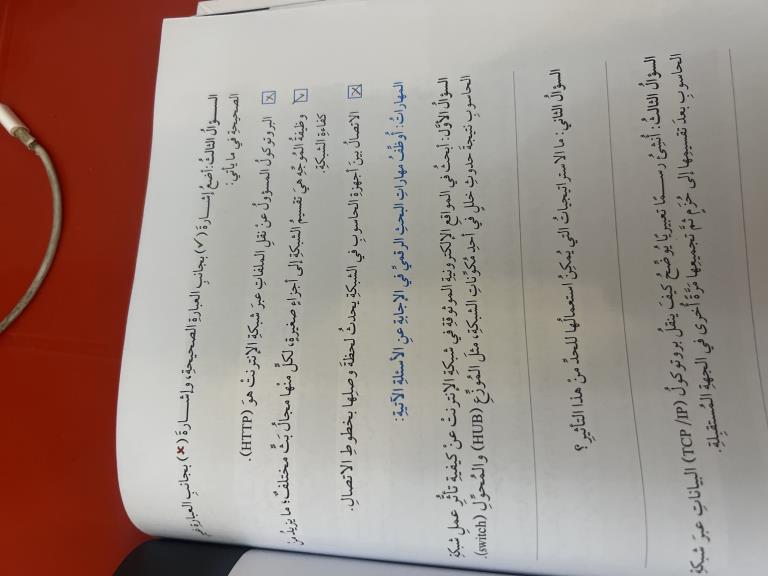 السؤالُ الثالثُ: أضعُ إشـــارةَ (✓) بجانبِ العبارةِ الصحيحةِ، وإشـــارةَ (✗) بجانبِ العبارةِ
الصحيحةِ في ما يأتي:
☒ البروتوكولُ المسؤولُ عنْ نقلِ الملفاتِ عبرَ شبكةِ الإنترنتْ هوَ (HTTP).
☑ وظيفةُ المُوجِّهِ هيَ تقسيمُ الشبكةِ إلى أجزاءٍ صغيرةٍ، لكلٍّ منْها مجالُ بَثٍّ مختلفٌ؛ ما يزيدُ منْ
كفاءةِ الشبكةِ.
☒ الاتصالُ بينَ أجهزةِ الحاسوبِ في الشبكةِ يحدثُ لحظةَ وصلِها بخطوطِ الاتصالِ.
المهاراتُ: أُوظِّفُ مهاراتِ البحثِ الرقميِّ في الإجابةِ عنِ الأسئلةِ الآتيةِ:
السؤالُ الأوَّلُ: أبحثُ في المواقعِ الإلكترونيةِ الموثوقةِ في شبكةِ الإنترنتْ عنْ كيفيةِ تأثُّرِ عملِ شبكةِ
الحاسوبِ نتيجةَ حدوثِ خللٍ في أحدِ مُكوِّناتِ الشبكةِ، مثلِ المُوزِّعِ (HUB) والمُحوِّلِ (switch).
السؤالُ الثاني: ما الاستراتيجياتُ التي يُمكِنُ استعمالُها للحدِّ منْ هذا التأثيرِ؟
السؤالُ الثالثُ: أُنشِئُ رســمًا تعبيريًّا يُوضِّحُ كيفَ ينقلُ بروتوكولُ (TCP/IP) البياناتِ عبرَ شبكةِ
الحاسوبِ بعدَ تقسيمِها إلى حُزَمٍ ثمَّ تجميعِها مَرَّةً أُخرى في الجهةِ المُستقبِلةِ.